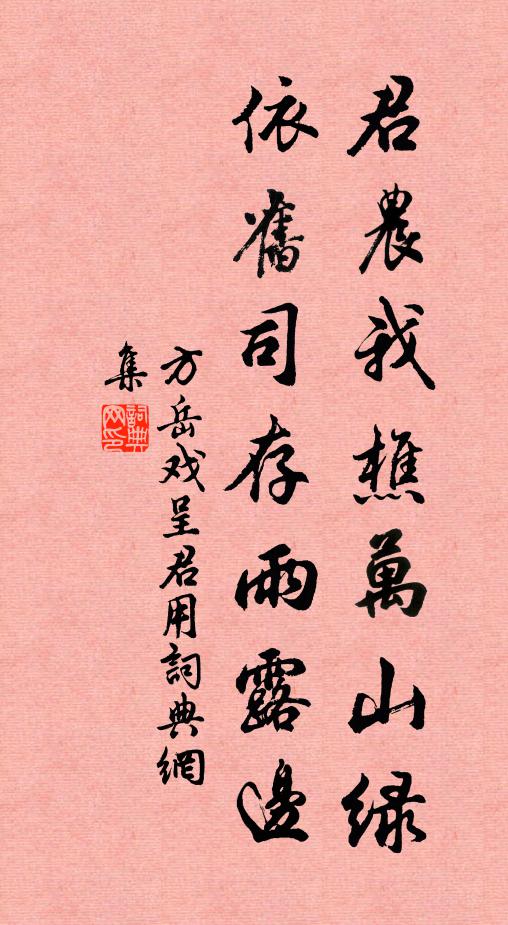 君農我樵萬山绿
依舊司存雨露邊
方岳戏呈君用詞典網
集
詞典
网印